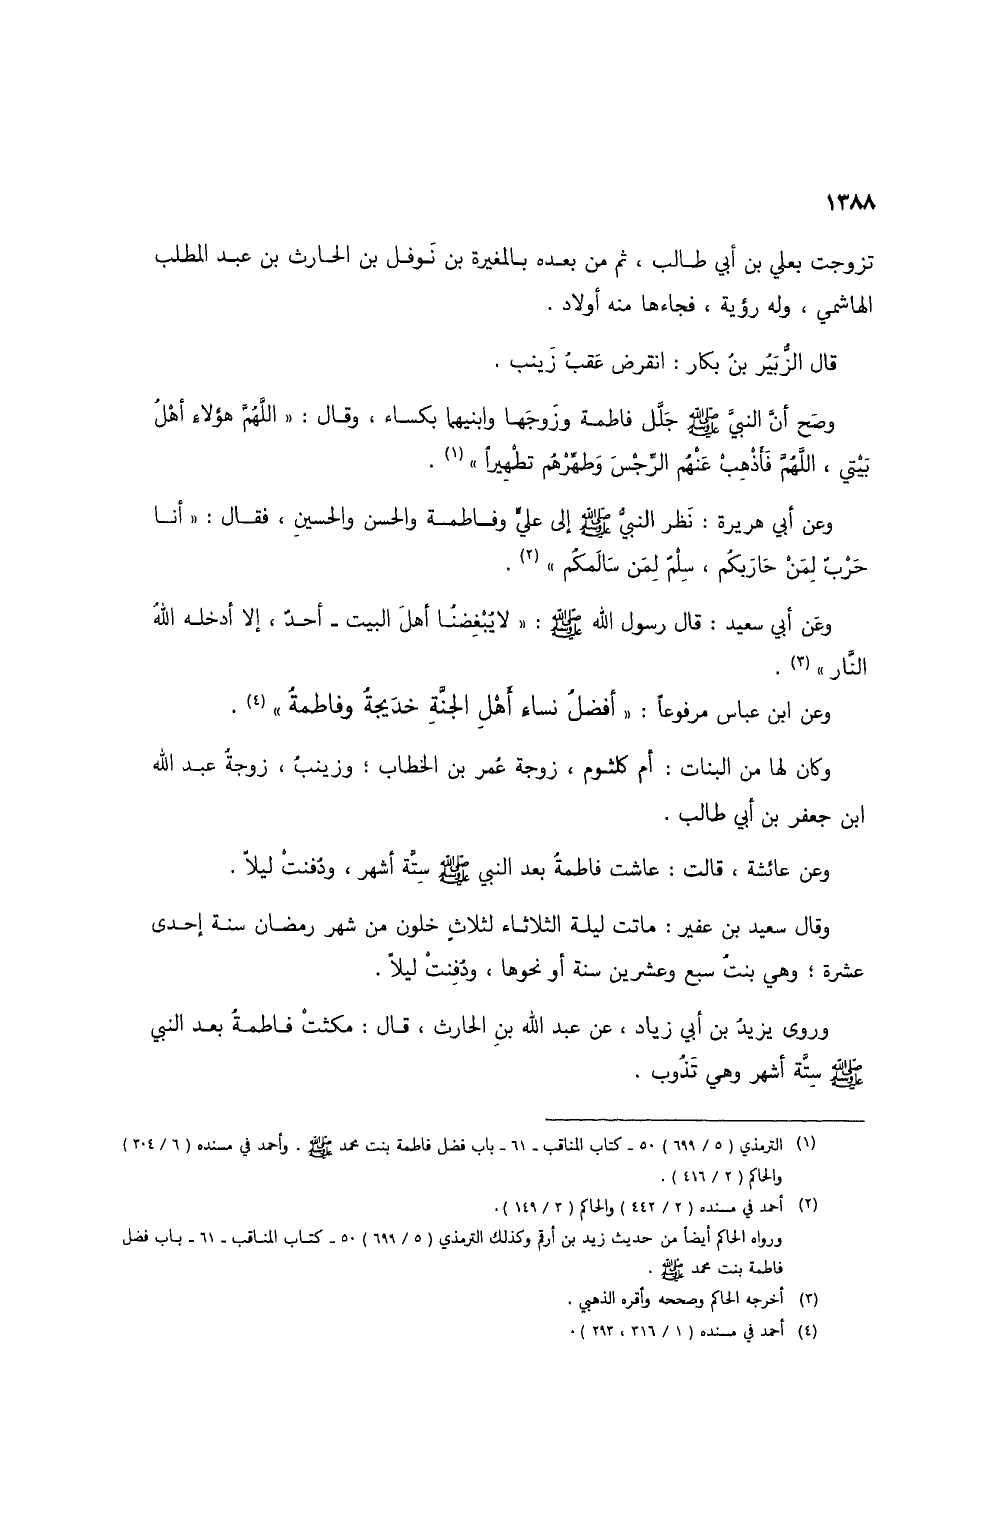 ١٣٨٨
تزوجت بعلي بن أبي طالب ، ثم من بعده بالمغيرة بن نَوفل بن الحارث بن عبد المطلب
الهاشمي ، وله رؤية ، فجاءها منه أولاد .
قال الزُّبَيُر بنُ بكار : انقرض عَقبُ زَينب .
وصَح أنَّ النبيَّ ﷺ جَلَّل فاطمة وزَوجَها وابنيهما بكساء ، وقال : « اللَّهُمَّ هؤلاء أهْلُ
بَيْتي ، اللَّهُمَّ فَأَذْهِبْ عَنْهُم الرِّجْسَ وَطهِّرْهُم تطْهِيراً » (١) .
وعن أبي هريرة : نَظر النبيُّ ﷺ إلى عليٍّ وفاطمة والحسن والحسينِ ، فقال : « أنا
حَرْبٌ لِمَنْ حَارَبكُم ، سِلْمٌ لِمَن سَالَمكُم » (٢) .
وعَن أبي سعيد : قال رسول الله ﷺ : « لايُبْغِضنُا أهلَ البيت ـ أحدّ ، إلا أدخله اللهُ
النَّار » (٣) .
وعن ابن عباس مرفوعاً : « أفضلُ نساء أَهْلِ الجنَّةِ خدَيجةُ وفاطمةُ » (٤) .
وكان لها من البنات : أم كلثوم ، زوجة عُمر بن الخطاب ؛ وزينبُ ، زوجةُ عبد الله
ابن جعفر بن أبي طالب .
وعن عائشة ، قالت : عاشت فاطمةُ بعد النبي ﷺ سِتَّة أشهر ، ودُفنتْ ليلاً .
وقال سعيد بن عفير : ماتت ليلة الثلاثاء لثلاثٍ خلون من شهر رمضان سنة إحدى
عشرة ؛ وهي بنتُ سبع وعشرين سنة أو نحوها ، ودُفِنتْ ليلاً .
وروى يزيدُ بن أبي زياد ، عن عبد الله بنِ الحارث ، قال : مكثتْ فاطمةُ بعد النبي
ﷺ سِتَّة أشهر وهي تَذُوب .
(١) الترمذي ( ٥ / ٦٩٩ ) ٥٠ ـ كتاب المناقب ـ ٦١ ـ باب فضل فاطمة بنت محمد ﷺ . وأحمد في مسنده ( ٦ / ٣٠٤ )
والحاكم ( ٢ / ٤١٦ ) .
(٢) أحمد في مسنده ( ٢ / ٤٤٢ ) والحاكم ( ٣ / ١٤٩ ) .
ورواه الحاكم أيضاً من حديث زيد بن أرقم وكذلك الترمذي ( ٥ / ٦٩٩ ) ٥٠ ـ كتاب المناقب ـ ٦١ ـ باب فضل
فاطمة بنت محمد ﷺ .
(٣) أخرجه الحاكم وصححه وأقره الذهبي .
(٤) أحمد في مسنده ( ١ / ٣١٦ ، ٢٩٣ ) .